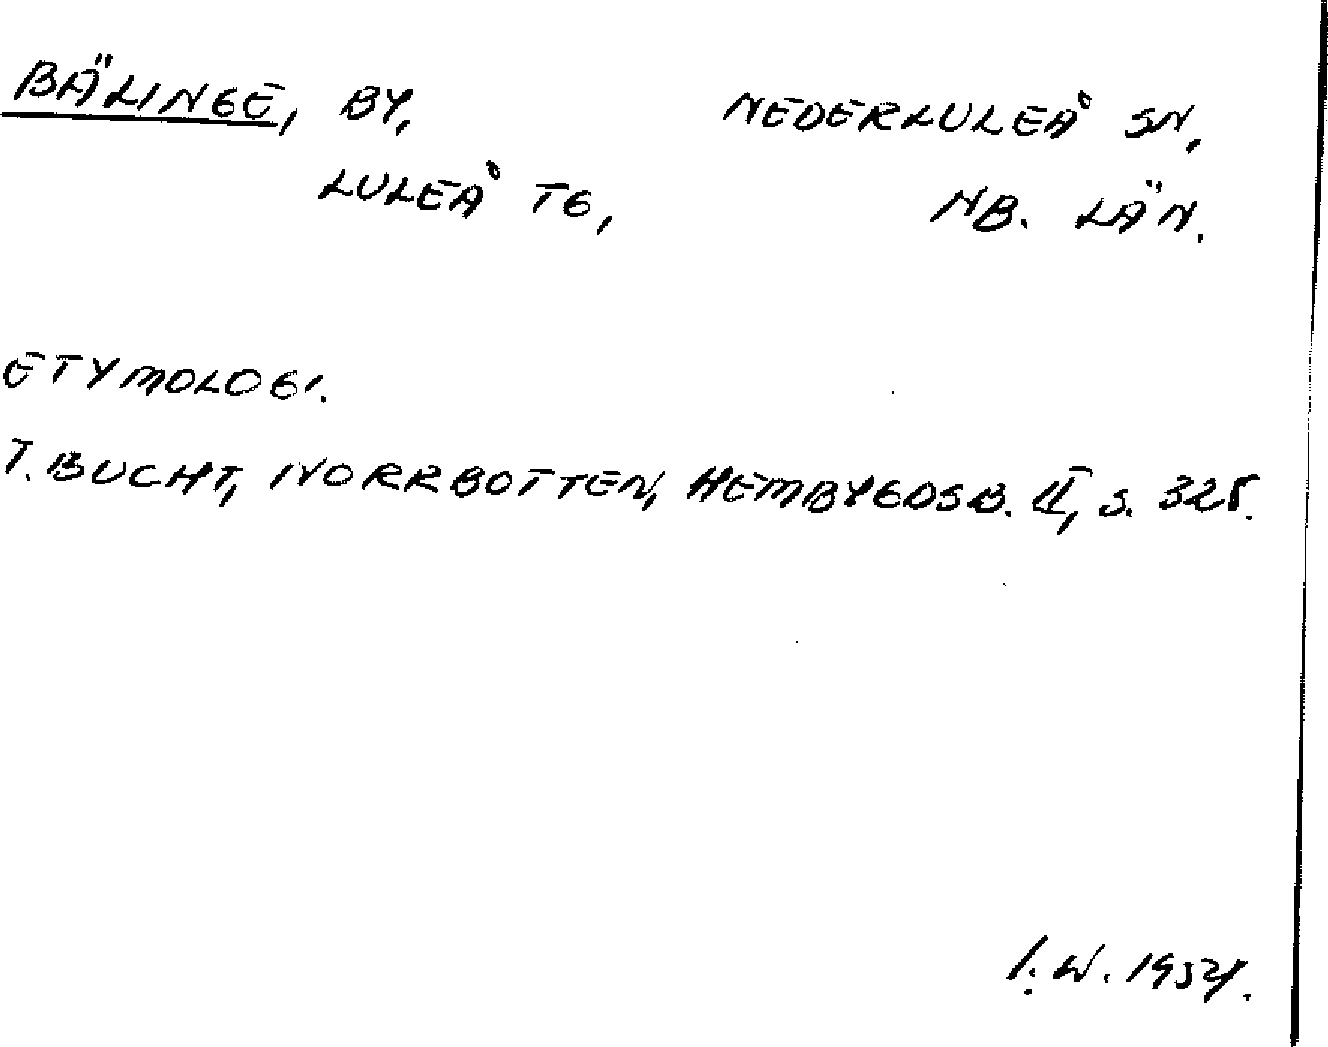 BÄLINGE, BY, NEDERLULEÅ SN,
LULEÅ TG, NB. LÄN.
ETYMOLOGI.
T. BUCHT, NORRBOTTEN, HEMBYGDSB. II, S.
I. W. 1954.